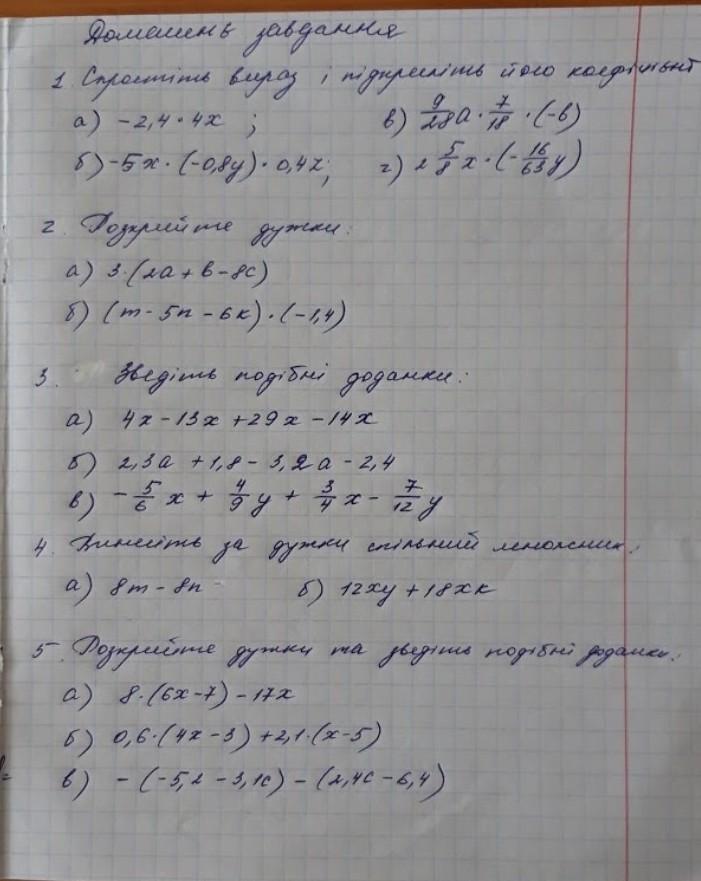 Домашнь завдання
1. Спростіть вираз і підкресліть його коефіцієнт
а) -2,4·4x ; в) 9/28 a · 7/18 · (-b)
б) -5x·(-0,8y)·0,4z; г) 2 5/8 x · (-16/63 y)
2. Розкрийте дужки:
а) 3·(2a+b-8c)
б) (m-5n-6k)·(-1,4)
3. Зведіть подібні доданки:
а) 4x-13x+29x-14x
б) 2,3a+1,8-3,2a-2,4
в) -5/6 x + 4/9 y + 3/4 x - 7/12 y
4. Винесіть за дужки спільний множник:
а) 8m-8n б) 12xy+18xk
5. Розкрийте дужки та зведіть подібні доданки:
а) 8·(6x-7)-17x
б) 0,6·(4x-3)+2,1·(x-5)
в) -(-5,2-3,1c)-(2,4c-6,4)